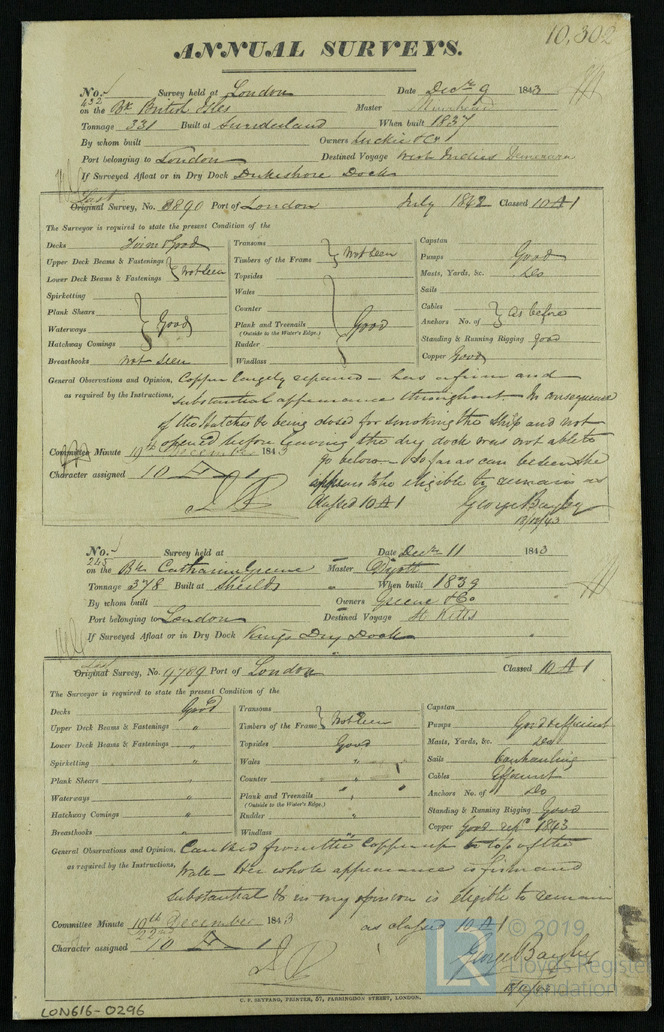 10,302
ANNUAL SURVEYS.
No. 432 Survey held at London Date Decr 9 1843
on the Bk British Isles Master
Tonnage 331 Built at Sunderland When built 1837
By whom built Owners Luckie & Co
Port belonging to London Destined Voyage West Indies Demerara
If Surveyed Afloat or in Dry Dock Dukeshore Dock
Last
Original Survey, No. 8890 Port of London July 1842 Classed 10 A 1
The Surveyor is required to state the present Condition of the
Decks Firm & Good
Upper Deck Beams & Fastenings } Not Seen
Lower Deck Beams & Fastenings
Spirketting
Plank Shears } Good
Waterways
Hatchway Comings
Breasthooks Not Seen
Transoms } Not Seen
Timbers of the Frame
Topsides
Wales
Counter
Plank and Treenails } Good
(Outside to the Water's Edge.)
Rudder
Windlass
Capstan
Pumps Good
Masts, Yards, &c. Do
Sails
Cables } As before
Anchors No. of
Standing & Running Rigging good
Copper Good
General Observations and Opinion, Copper largely repaired – has a firm and
as required by the Instructions, substantial appearance throughout – In consequence
of the Hatches being closed for smoking the ship and not
opened before leaving the dry dock was not able to
Committee Minute 19th December 1843 go below – So far as can be seen she
Character assigned 10 A 1 appears to be eligible to remain as
Classed 10 A 1 George Bayley
12/12/43
No. 245 Survey held at Date Decr 11 1843
on the Bk Catharine Greene Master
Tonnage 378 Built at Shields When built 1839
By whom built Owners Greene & Co
Port belonging to London Destined Voyage St Kitts
If Surveyed Afloat or in Dry Dock Kings Dry Dock
Last
Original Survey, No. 9789 Port of London Classed 10 A 1
The Surveyor is required to state the present Condition of the
Decks Good
Upper Deck Beams & Fastenings "
Lower Deck Beams & Fastenings "
Spirketting "
Plank Shears "
Waterways "
Hatchway Comings "
Breasthooks "
Transoms } Not Seen
Timbers of the Frame
Topsides Good
Wales "
Counter "
Plank and Treenails "
(Outside to the Water's Edge.)
Rudder "
Windlass "
Capstan
Pumps Good & efficient
Masts, Yards, &c. Do
Sails Overhauling
Cables Efficient
Anchors No. of Do
Standing & Running Rigging Good
Copper Good 1843
General Observations and Opinion, Caulked from the Copper up to top of the
as required by the Instructions, Wale – Her whole appearance is firm and
substantial & in my opinion is eligible to remain
Committee Minute 19th December 1843 as classed 10 A 1
22nd
Character assigned 10 A 1 George Bayley
C. F. SEYFANG, PRINTER, 57, FARRINGDON STREET, LONDON.
LON616-0296
LR © 2019
Lloyd's Register
Foundation